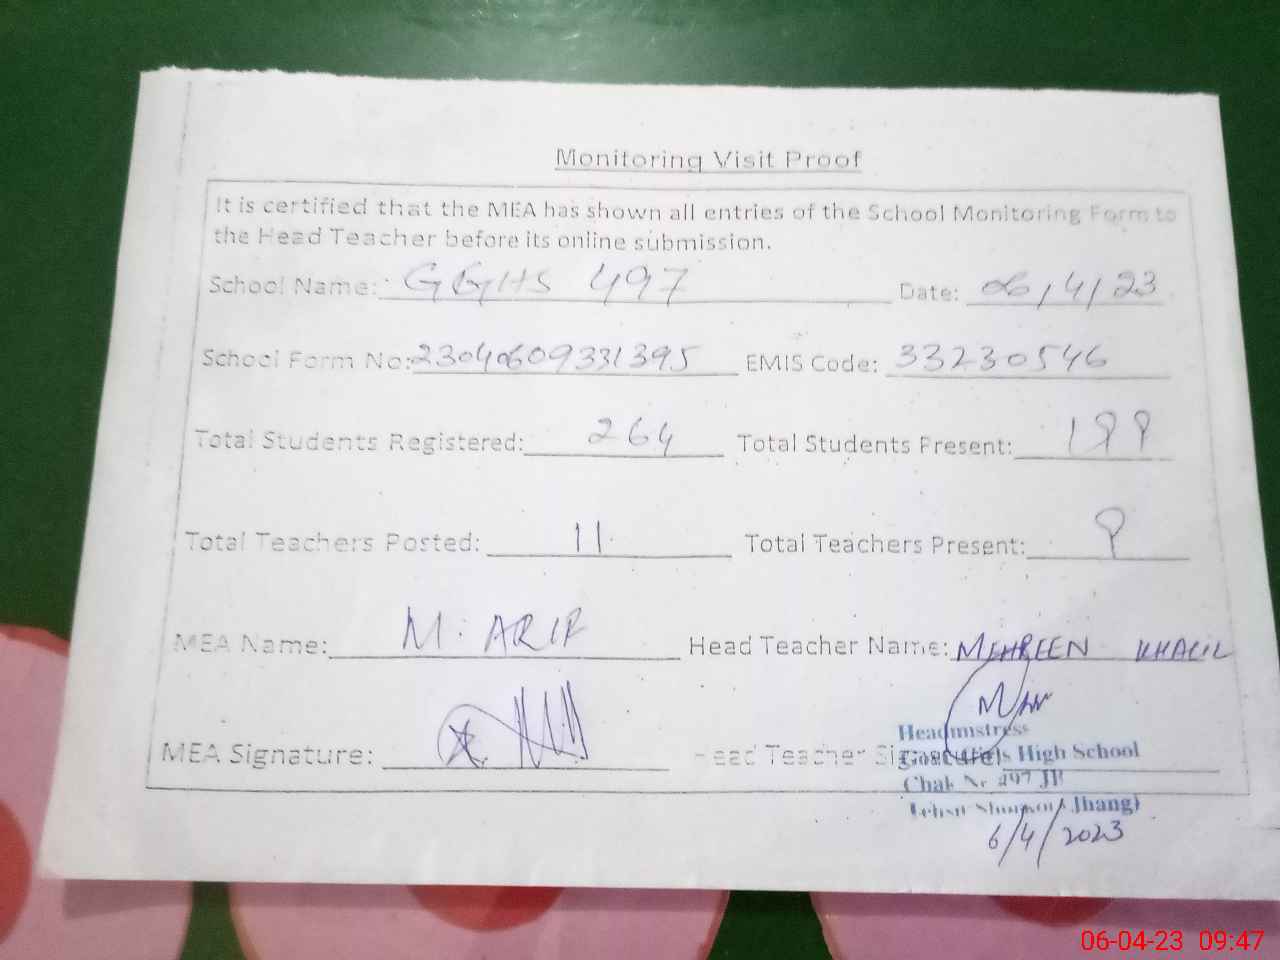 Monitoring Visit Proof
It is certified that the MEA has shown all entries of the School Monitoring Form to
the Head Teacher before its online submission.
School Name: GGHS 497 Date: 06/4/23
School Form No: 23040609331395 EMIS Code: 33230546
Total Students Registered: 264 Total Students Present: 199
Total Teachers Posted: 11 Total Teachers Present: 9
MEA Name: M. ARIF Head Teacher Name: MEHREEN KHALIL
MEA Signature: Head Teacher Signature:
Headmistress
Govt. Girls High School
Chak Nr 497 JB
Jhang)
6/4/2023
06-04-23 09:47